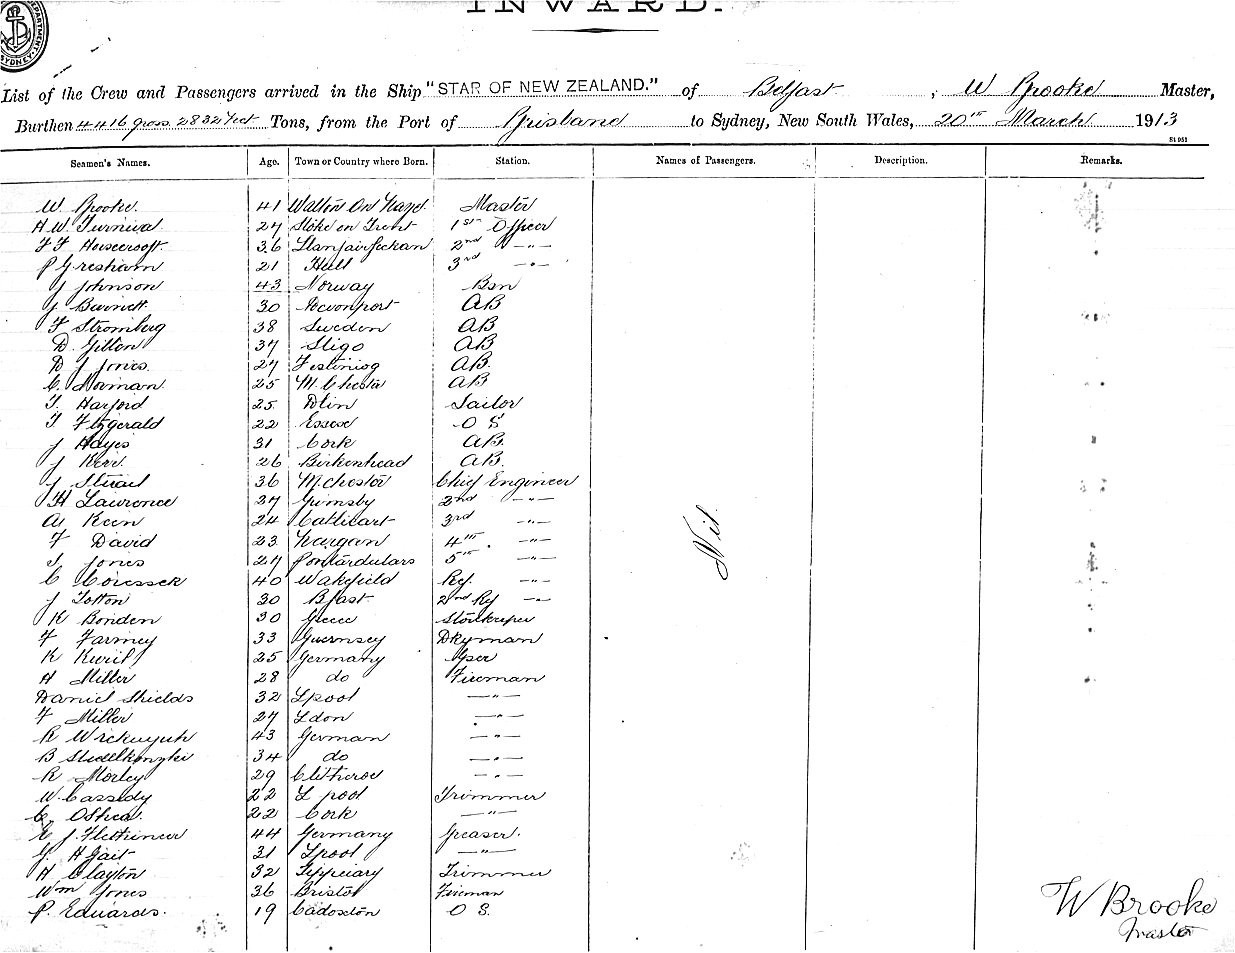 INWARD.
DEPARTMENT. SYDNEY.
List of the Crew and Passengers arrived in the Ship "STAR OF NEW ZEALAND." of Belfast, W Brooke Master,
Burthen 4416 gross 2832 Net Tons, from the Port of Brisbane to Sydney, New South Wales, 20th March 1913
Seamen's Names. Age. Town or Country where Born. Station. Names of Passengers. Description. Remarks.
W Brooke. 41 Walton On Naze Master
H.W. Furnival 27 Stoke on Trent 1st Officer
F F Horsecroft 36 Llanfairfechan 2nd -"-
P Gresham 21 Hull 3rd -"-
J Johnson 43 Norway Bsn
J Burnett 30 Devonport AB
F Stromberg 38 Sweden AB
D. Gillon 37 Sligo AB
D J Jones. 27 Festiniog AB.
C. Norman 25 M.Chester AB
T. Harford 25 Dlin Sailor
T Fitzgerald 22 Essex O S
J Hayes 31 Cork AB.
J Kerr 26 Birkenhead AB.
J Stuart 36 Mchester Chief Engineer
H Lawrence 27 Grimsby 2nd -"-
A Keen 24 Cathcart 3rd -"-
F David 23 4th. -"-
T Jones 27 Pontardulais 5th -"-
C 40 Wakefield Rf. -"-
J Totton 30 Bfast 2nd Rf -"-
K Bonden 30 Greece Storekeeper
F Farmey 33 Guernsey Dkyman
K 25 Germany Gser
H Miller 28 do Fireman
Daniel Shields 32 Lpool -"-
F Miller 27 Ldon -"-
R 43 German -"-
B 34 do -"-
R Morley 29 Clitheroe -"-
W Cassidy 22 L pool Trimmer
C. OShea. 22 Cork -"-
E J 44 Germany Greaser.
G. H Gait 31 Lpool -"-
H Clayton 32 Tipperary Trimmer
Wm Jones 36 Bristol Fireman
P. Edwards. 19 Cadoxton O S.
Nil
W Brooke
Master